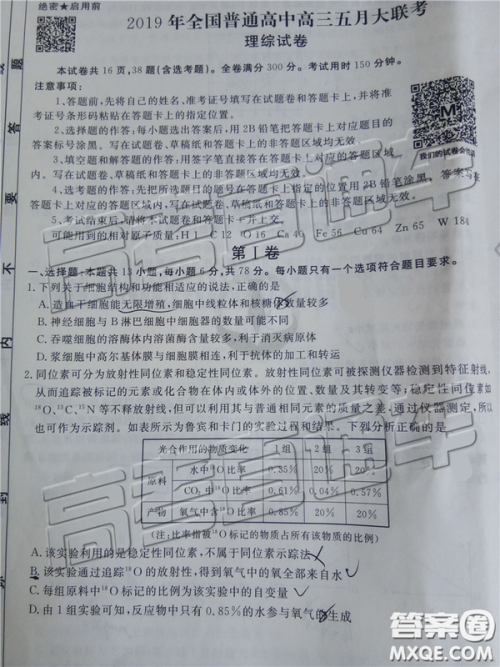 绝密★启用前
2019年全国普通高中高三五月大联考
理综试卷
本试卷共16页,38题(含选考题)。全卷满分300分。考试用时150分钟。
注意事项:
1.答题前,先将自己的姓名、准考证号填写在试题卷和答题卡上,并将准
考证号条形码粘贴在答题卡上的指定位置。
2.选择题的作答:每小题选出答案后,用2B铅笔把答题卡上对应题目的
答案标号涂黑。写在试题卷、草稿纸和答题卡上的非答题区域均无效。
3.填空题和解答题的作答:用签字笔直接答在答题卡上对应的答题区域
内。写在试题卷、草稿纸和答题卡上的非答题区域均无效。
我们的试卷会
4.选考题的作答:先把所选题目的题号在答题卡上指定的位置用2B铅笔涂黑。答案写在
答题卡上对应的答题区域内,写在试题卷、草稿纸和答题卡上的非答题区域均无效。
5.考试结束后,请将本试题卷和答题卡一并上交。
可能用到的相对原子质量:H 1 C 12 O 16 Ca 40 Fe 56 Cu 64 Zn 65 W 184
第Ⅰ卷
一、选择题:本题共13小题,每小题6分,共78分。每小题只有一个选项符合题目要求。
1.下列关于细胞结构和功能相适应的说法,正确的是
A.造血干细胞能无限增殖,细胞中线粒体和核糖体数量较多
B.神经细胞与B淋巴细胞中细胞器的数量可能不同
C.吞噬细胞的溶酶体内溶菌酶含量较多,利于消灭病原体
D.浆细胞中高尔基体膜与细胞膜相连,利于抗体的加工和转运
2.同位素可分为放射性同位素和稳定性同位素。放射性同位素可被探测仪器检测到特征射线,
从而追踪被标记的元素或化合物在体内或体外的位置、数量及其转变等;稳定性同位素如
¹⁸O、¹³C、¹⁵N等不释放射线,但可以利用其与普通相同元素的质量之差,通过仪器测定,所以
也可作为示踪剂。如表所示为鲁宾和卡门的实验过程和结果。下列分析正确的是
光合作用的物质变化 1组 2组 3组
原料 水中¹⁸O比率 0.85% 20% 20%
CO₂中¹⁸O比率 0.61% 0.04% 0.57%
产物 氧气中¹⁸O比率 0.85% 20% 20%
(注:比率指被¹⁸O标记的物质占所有该物质的比例)
A.该实验利用的是稳定性同位素,不属于同位素示踪法
B.该实验通过追踪¹⁸O的放射性,得到氧气中的氧全部来自水
C.每组原料中¹⁸O标记的比例为自变量该实验中的自变量
D.由1组实验可知,反应物中只有0.85%的水参与氧气的生成
题
答
要
不
内
线
封
高考直通车
高考直通车
高考直通车
答案圈
MXQE.COM